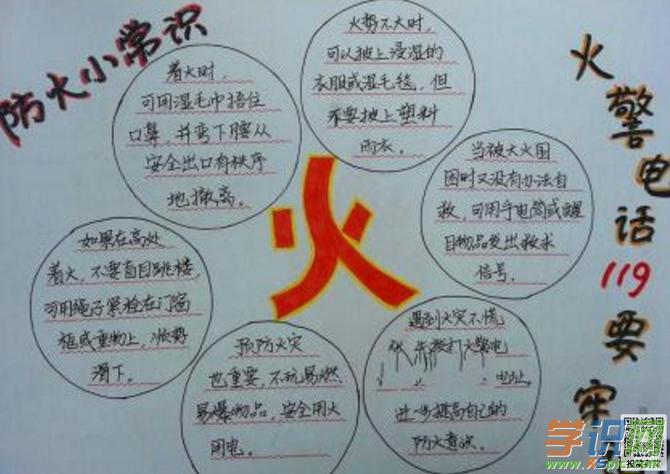 防火小常识
着火时，
可用湿毛巾捂住
口鼻，并弯下腰从
安全出口有秩序
地撤离。
火势不大时，
可以披上浸湿的
衣服或湿毛毯，但
不要披上塑料
雨衣。
当被大火围
困时又没有办法自
救，可用手电筒或醒
目物品发出求救
信号。
如果在高处
着火，不要盲目跳楼，
可用绳子紧栓在门窗
框或重物上，顺势
滑下。
火
预防火灾
也重要，不玩易燃
易爆物品，安全用火
用电。
遇到火灾不慌
张
进步提高自己的
防火意识。
火警电话119要牢
学识网